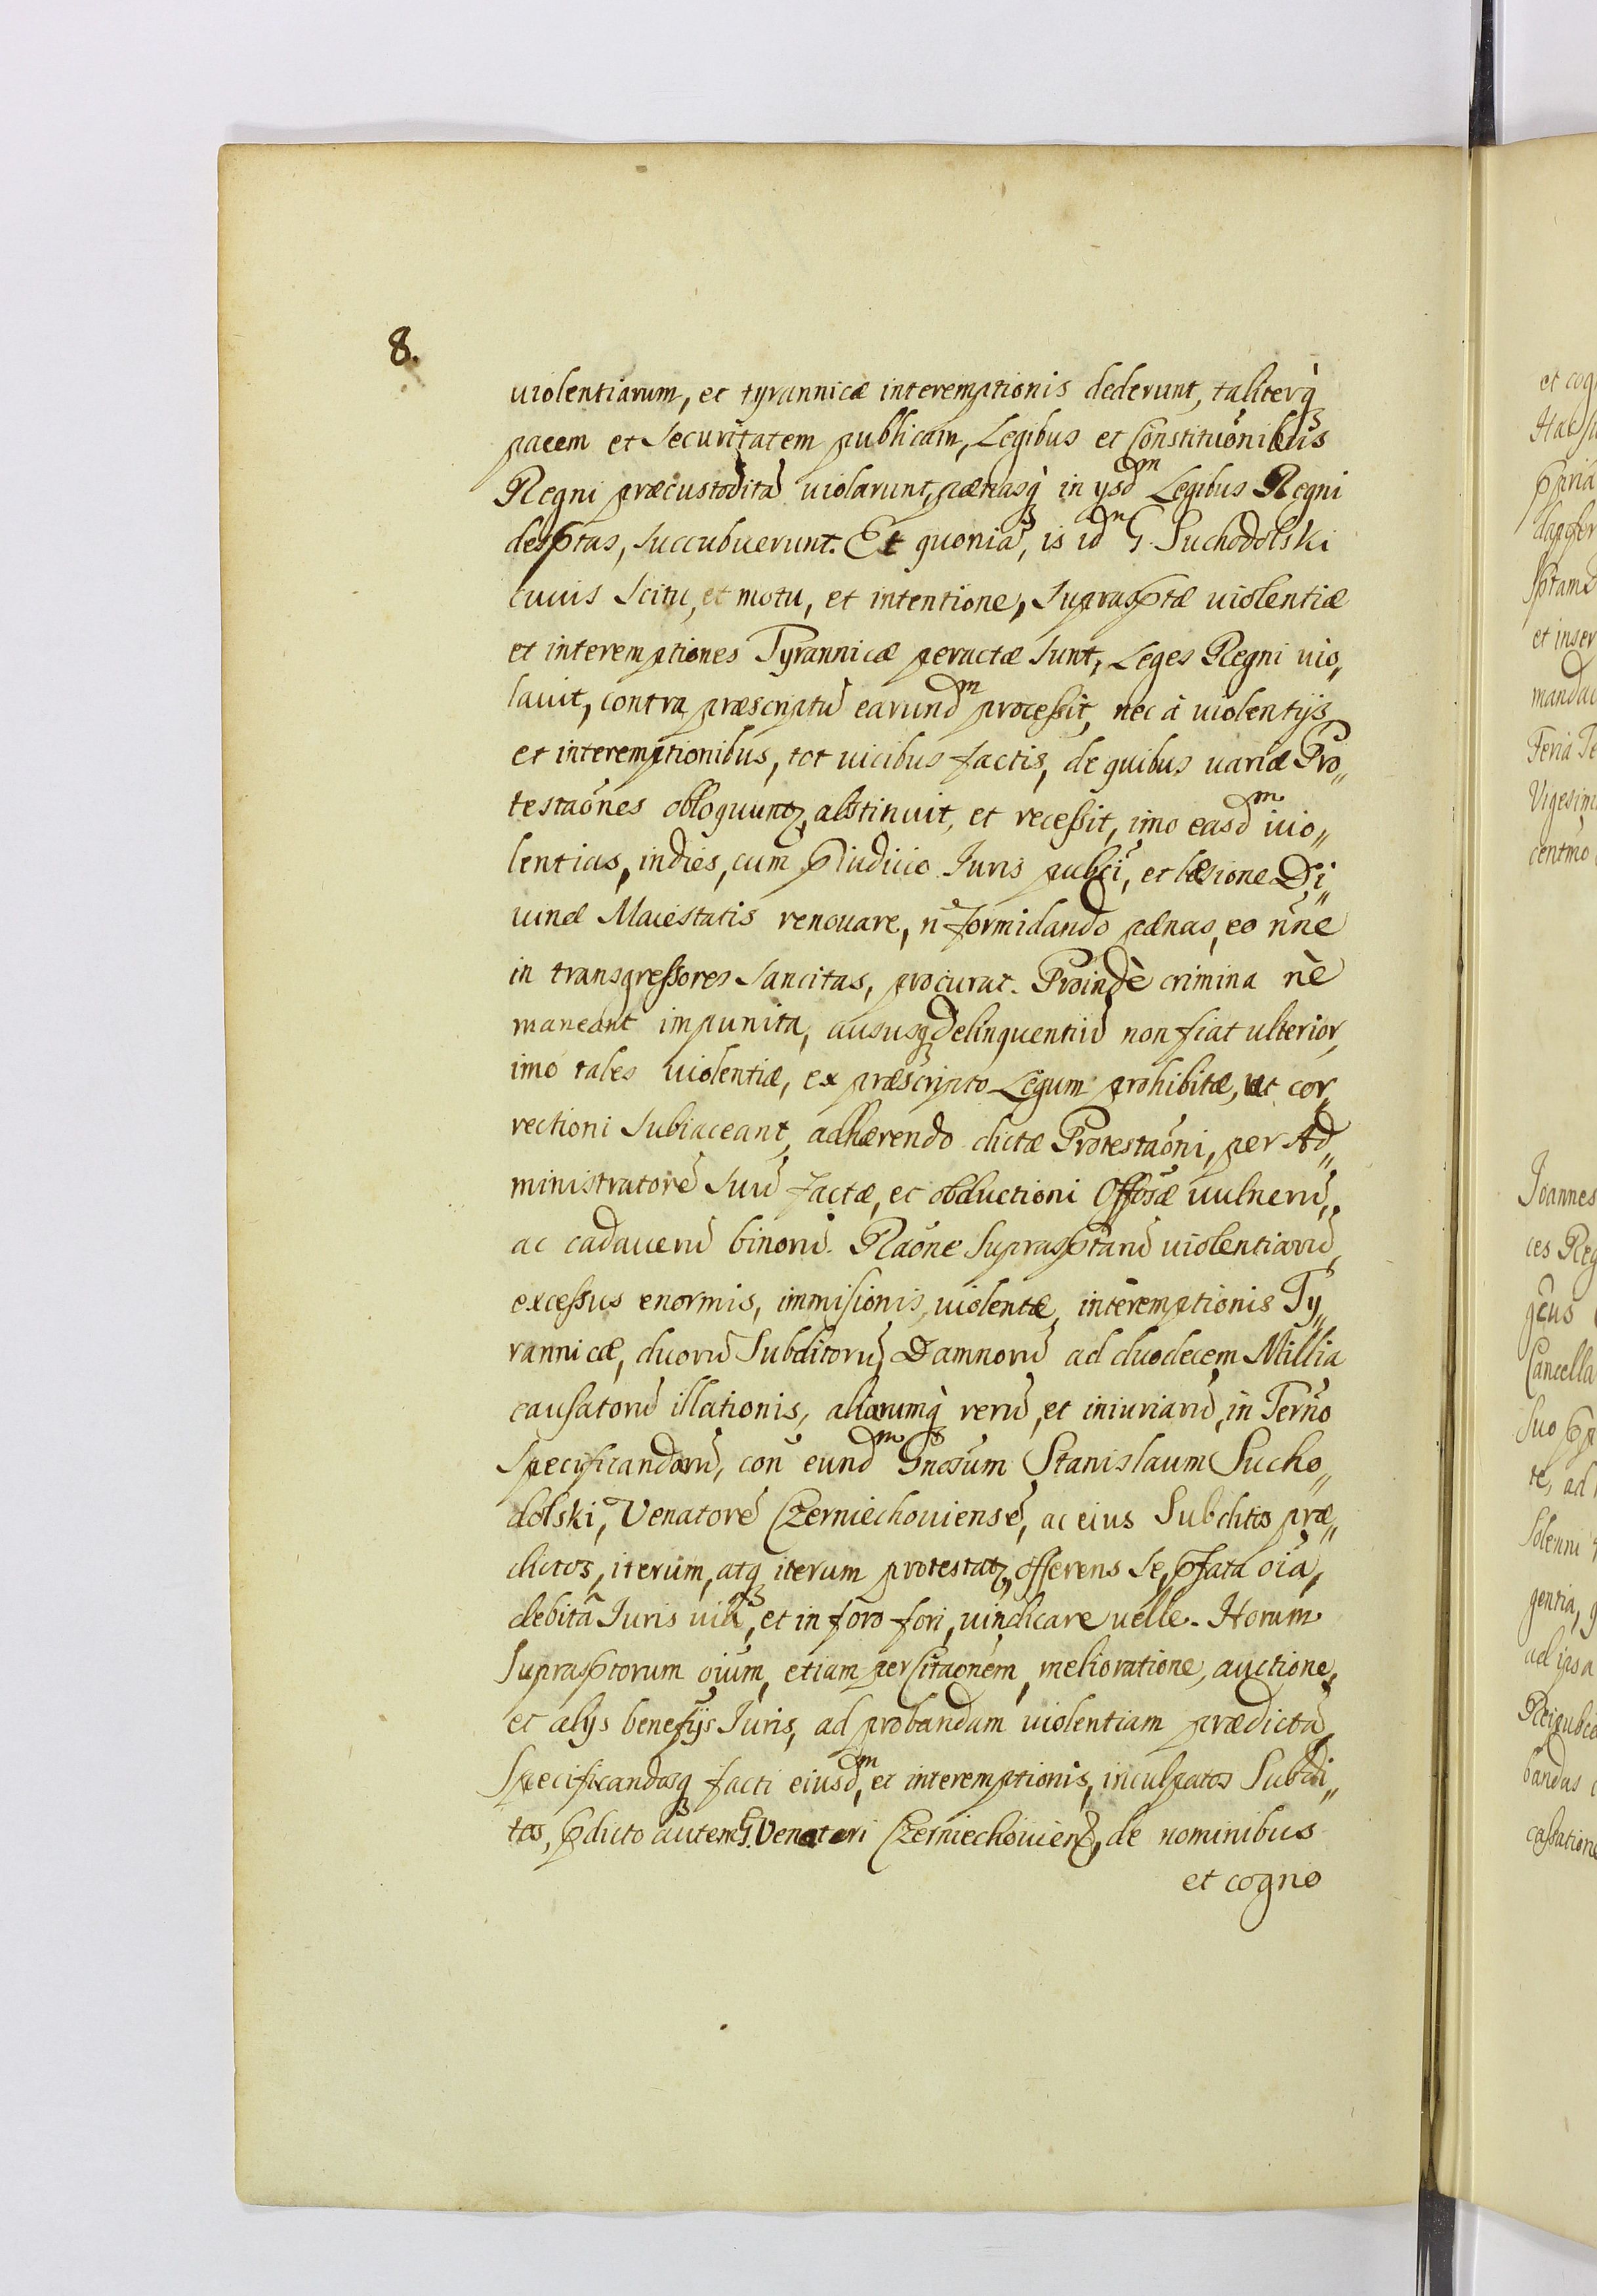 8.
violentiarum, et tyrannicæ interemptionis dederunt, taliterq̀
pacem et Securitatem publicam, Legibus et Constituõnibus
Regni præcustoditã violarunt, pœnasq̀ in ysdm Legibus Regni
desptas, succubuerunt. Et quoniã, is idm G. Suchodolski
cuuis Scitu, et motu, et intentione, Suprasptæ uiolentiæ
et interemptiones Tyrannicæ peractæ sunt, Leges Regni uio„
lauit, contra præscriptũ earundm processit, nec à uiolentijs
et interemptionibus, tot uicibus factis, de quibus uariæ Pro„
testaõnes obloquuntꝫ, abstinuit, et recessit, imo easdm uio„
lentias, indies, cum pjudicio Juris pubci, et læsione Di„
uinæ Maiestatis renouare, ñ formidando pœnas, eo ñne
in transgressores sancitas, procurat. Proindè crimina nè
maneant impunita, aususqꝫ delinquentiũ non fiat ulterior,
imò tales uiolentiæ, ex præscripto Legum prohibitæ, ut cor„
rectioni Subiaceant, adhærendo dictæ Protestaõni, per Ad„
ministratorẽ Suũ factæ, et obductioni Offosæ uulnerũ,
ac cadauerũ binorũ. Raõne Suprasptarũ uiolentiarũ,
excessus enormis, immisionis, uiolentæ, interemptionis Ty„
rannicæ, duorũ Subditorũ, Damnorũ ad duodecem Millia
causatorũ illationis, aliarumq̀ rerũ, et iniuriarũ, in Terño
Specificandorũ, coñ eundm Gnosum Stanislaum Sucho„
dolski, Venatorẽ Czerniechouiensẽ, ac eius Subditos præ„
dictos, iterum, atqꝫ iterum protestatꝫ, offerens Se, pfata oĩa,
debitâ Juris uiâ, et in foro fori, uindicare uelle. Horum
Suprasptorum oĩum, etiam per Citaonem, melioratione, auctione,
et alys benefijs Juris, ad probandam uiolentiam prædictã,
Specificandosqꝫ facti eiusdm, et interemptionis, inculpatos Subdi„
tos, pdicto autem G. Venatori Czerniechouien̄, de nominibus
et cogno